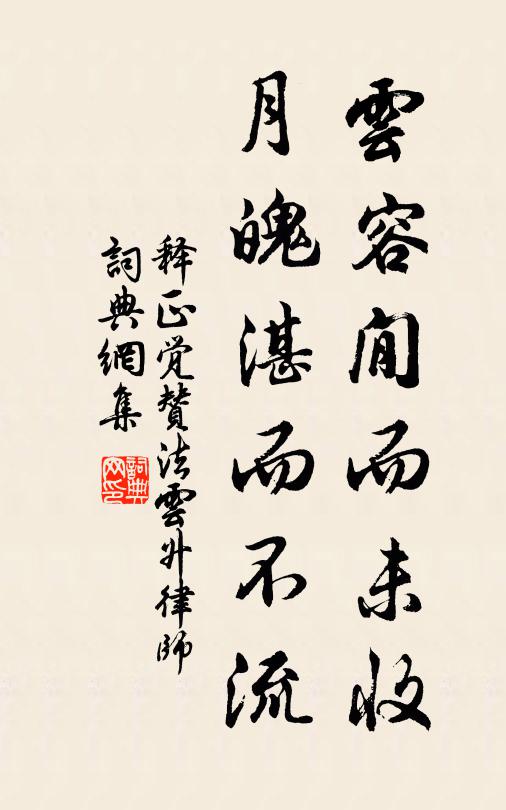 雲容閒而未收
月魄湛而不流
释正觉赞法雲外律師
詞典網集
詞典网印